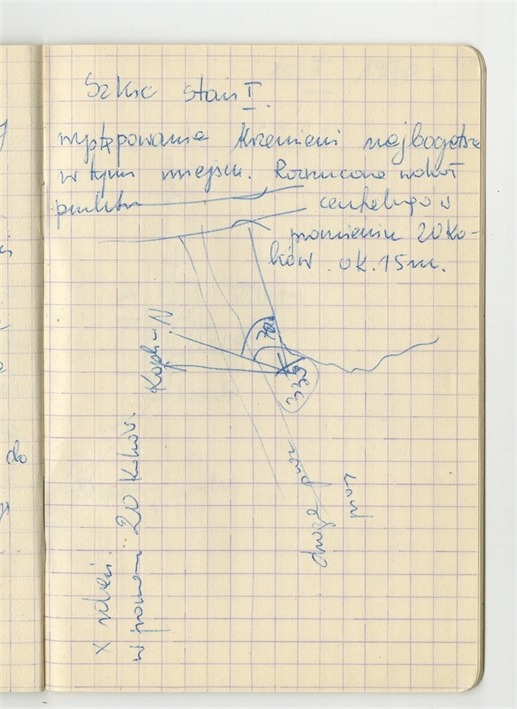 Szkic stan I.
występowanie krzemieni najbogatsze
w tym miejscu. Rozrzucone wokół
punktu centralnego w
promieniu 20 kro-
ków. ok. 15 m.
N
70
330
droga
X
w promieniu 20 kroków.